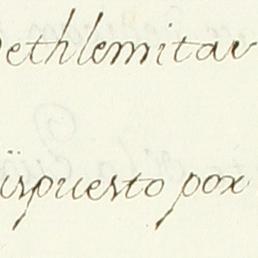 Bethlemitas
dispuesto por